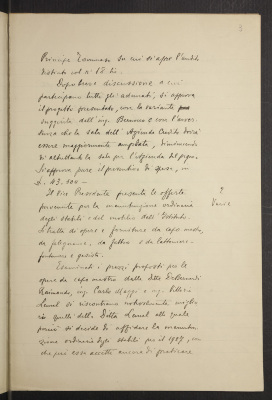 3
Principe Tommaso su cui si apre l'antico
distinto col n° 18 bis.
Dopo breve discussione a cui
participano tutti gli adunati, si approva
il progetto presentato, con la variante
suggerita dall'ing. Bonomo e con l'avver-
tenza che la sala dell'Azienda Credito dovrà
essere maggiormente ampliata, rinunciando
di abbellire la sala per l'Azienda dei pegni.
Si approva pure il preventivo di spesa, in
L. 43.104 -
Il Vice Presidente presenta le offerte
pervenute per la manutenzione ordinaria
degli stabili e del mobilio dell'Istituto.
Si tratta di opere e forniture da capo mastro,
da falegname, da fabbro e da lattoniere,
fontaniere e gasista.
Esaminati i prezzi proposti per le
opere da capo mastro dalle Ditte
Raimondo, ing. Carlo Maggi e ing.
si riscontrano notevolmente miglio-
ri quelli della Ditta alla quale
perciò si decide di affidare la manuten-
zione ordinaria degli stabili per il 1907,
che qui essa accetti ancora di praticare